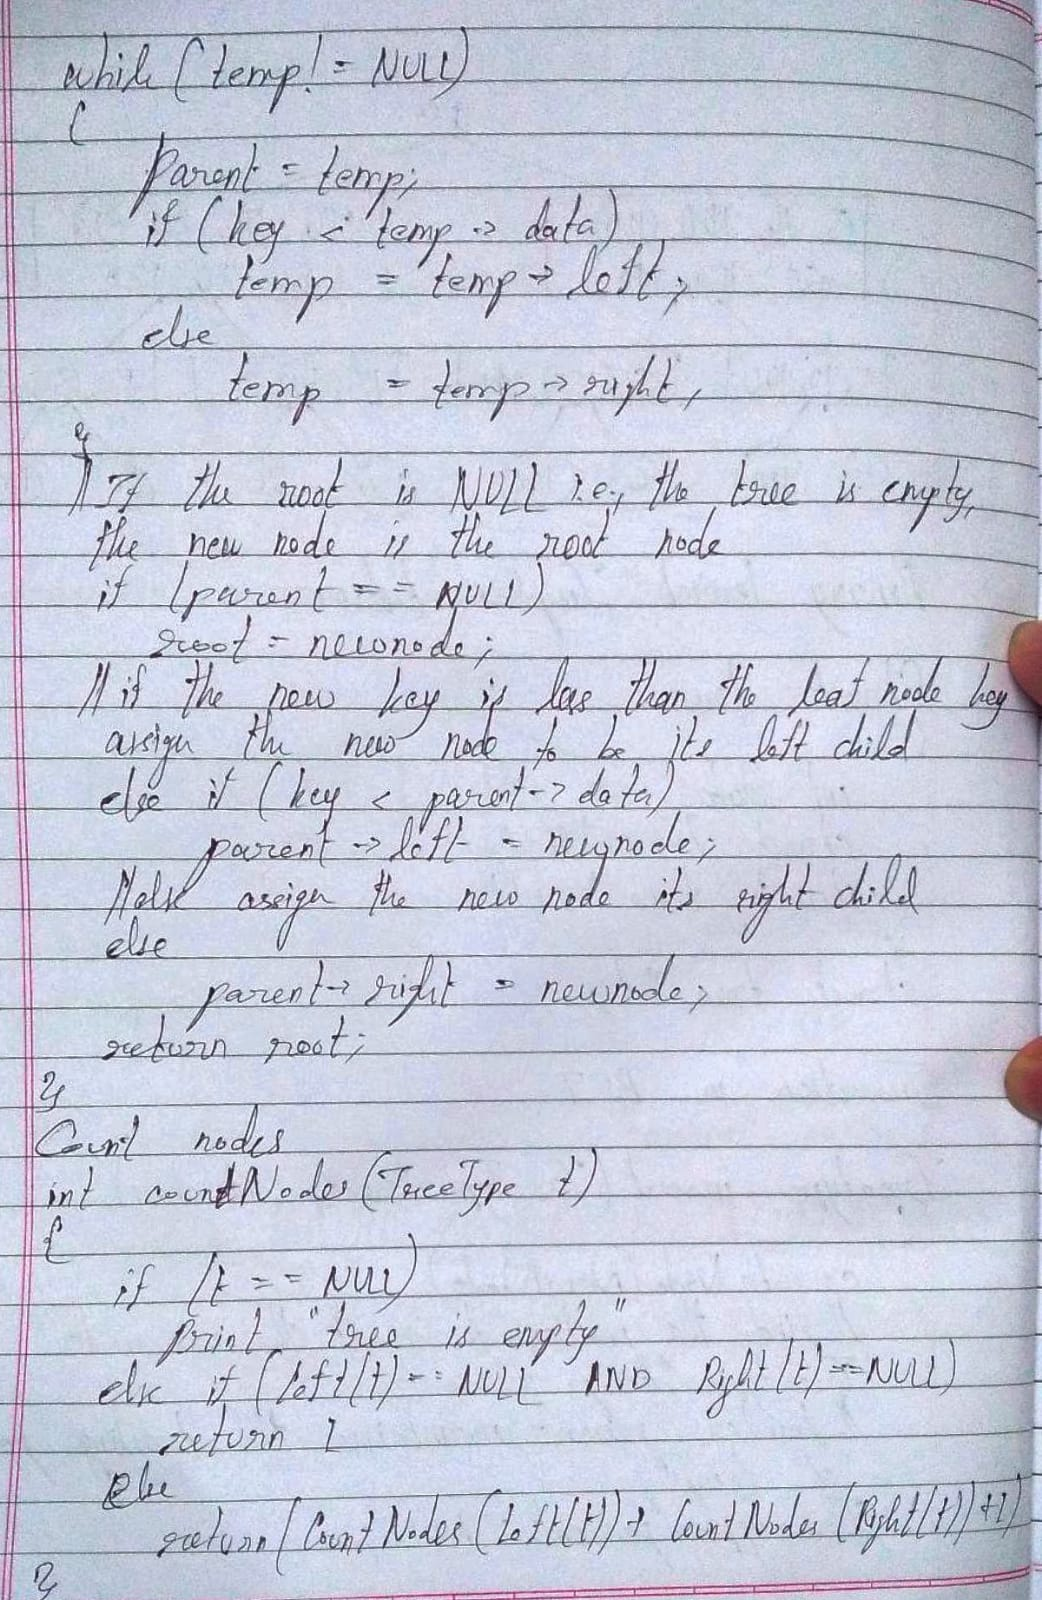 while (temp! = NULL)
{
Parent = temp;
if (key < temp -> data)
temp = temp -> left;
else
temp = temp -> right,
}
// If the root is NULL i.e., the tree is empty,
the new node is the root node
if (parent == NULL)
root = newnode;
// if the new key is less than the leaf node key
assign the new node to be its left child
else if (key < parent -> data)
parent -> left = newnode;
// else assign the new node its right child
else
parent -> right = newnode;
return root;
}
Count nodes
int countNodes (TreeType t)
{
if (t == NULL)
Print "tree is empty"
else if (Left(t) == NULL AND Right(t) == NULL)
return 1
Else
return (CountNodes (Left(t)) + CountNodes (Right(t)) +1)
}